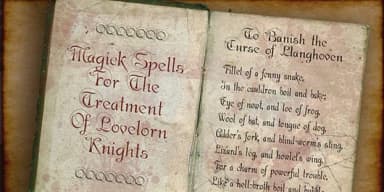 Magick Spells
For The
Treatment
Of Lovelorn
Knights
To Banish the
Curse of Llanghoven
Fillet of a fenny snake,
In the cauldron boil and bake;
Eye of newt, and toe of frog,
Wool of bat, and tongue of dog,
Adder's fork, and blind-worm's sting,
Lizard's leg, and howlet's wing,
For a charm of powerful trouble,
Like a hell-broth boil and bubble.